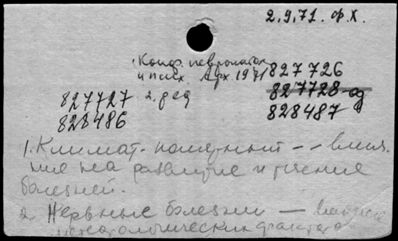 2.9.71. ф.Х.
Конф. невропатол.
и псих. Арх 1971
2. ред
827726
827728
827727
828487
828486
1. Климат. – влия-
ние на развитие и течение
болезней.
2. Нервные болезни – влияние
метеорологических факторов